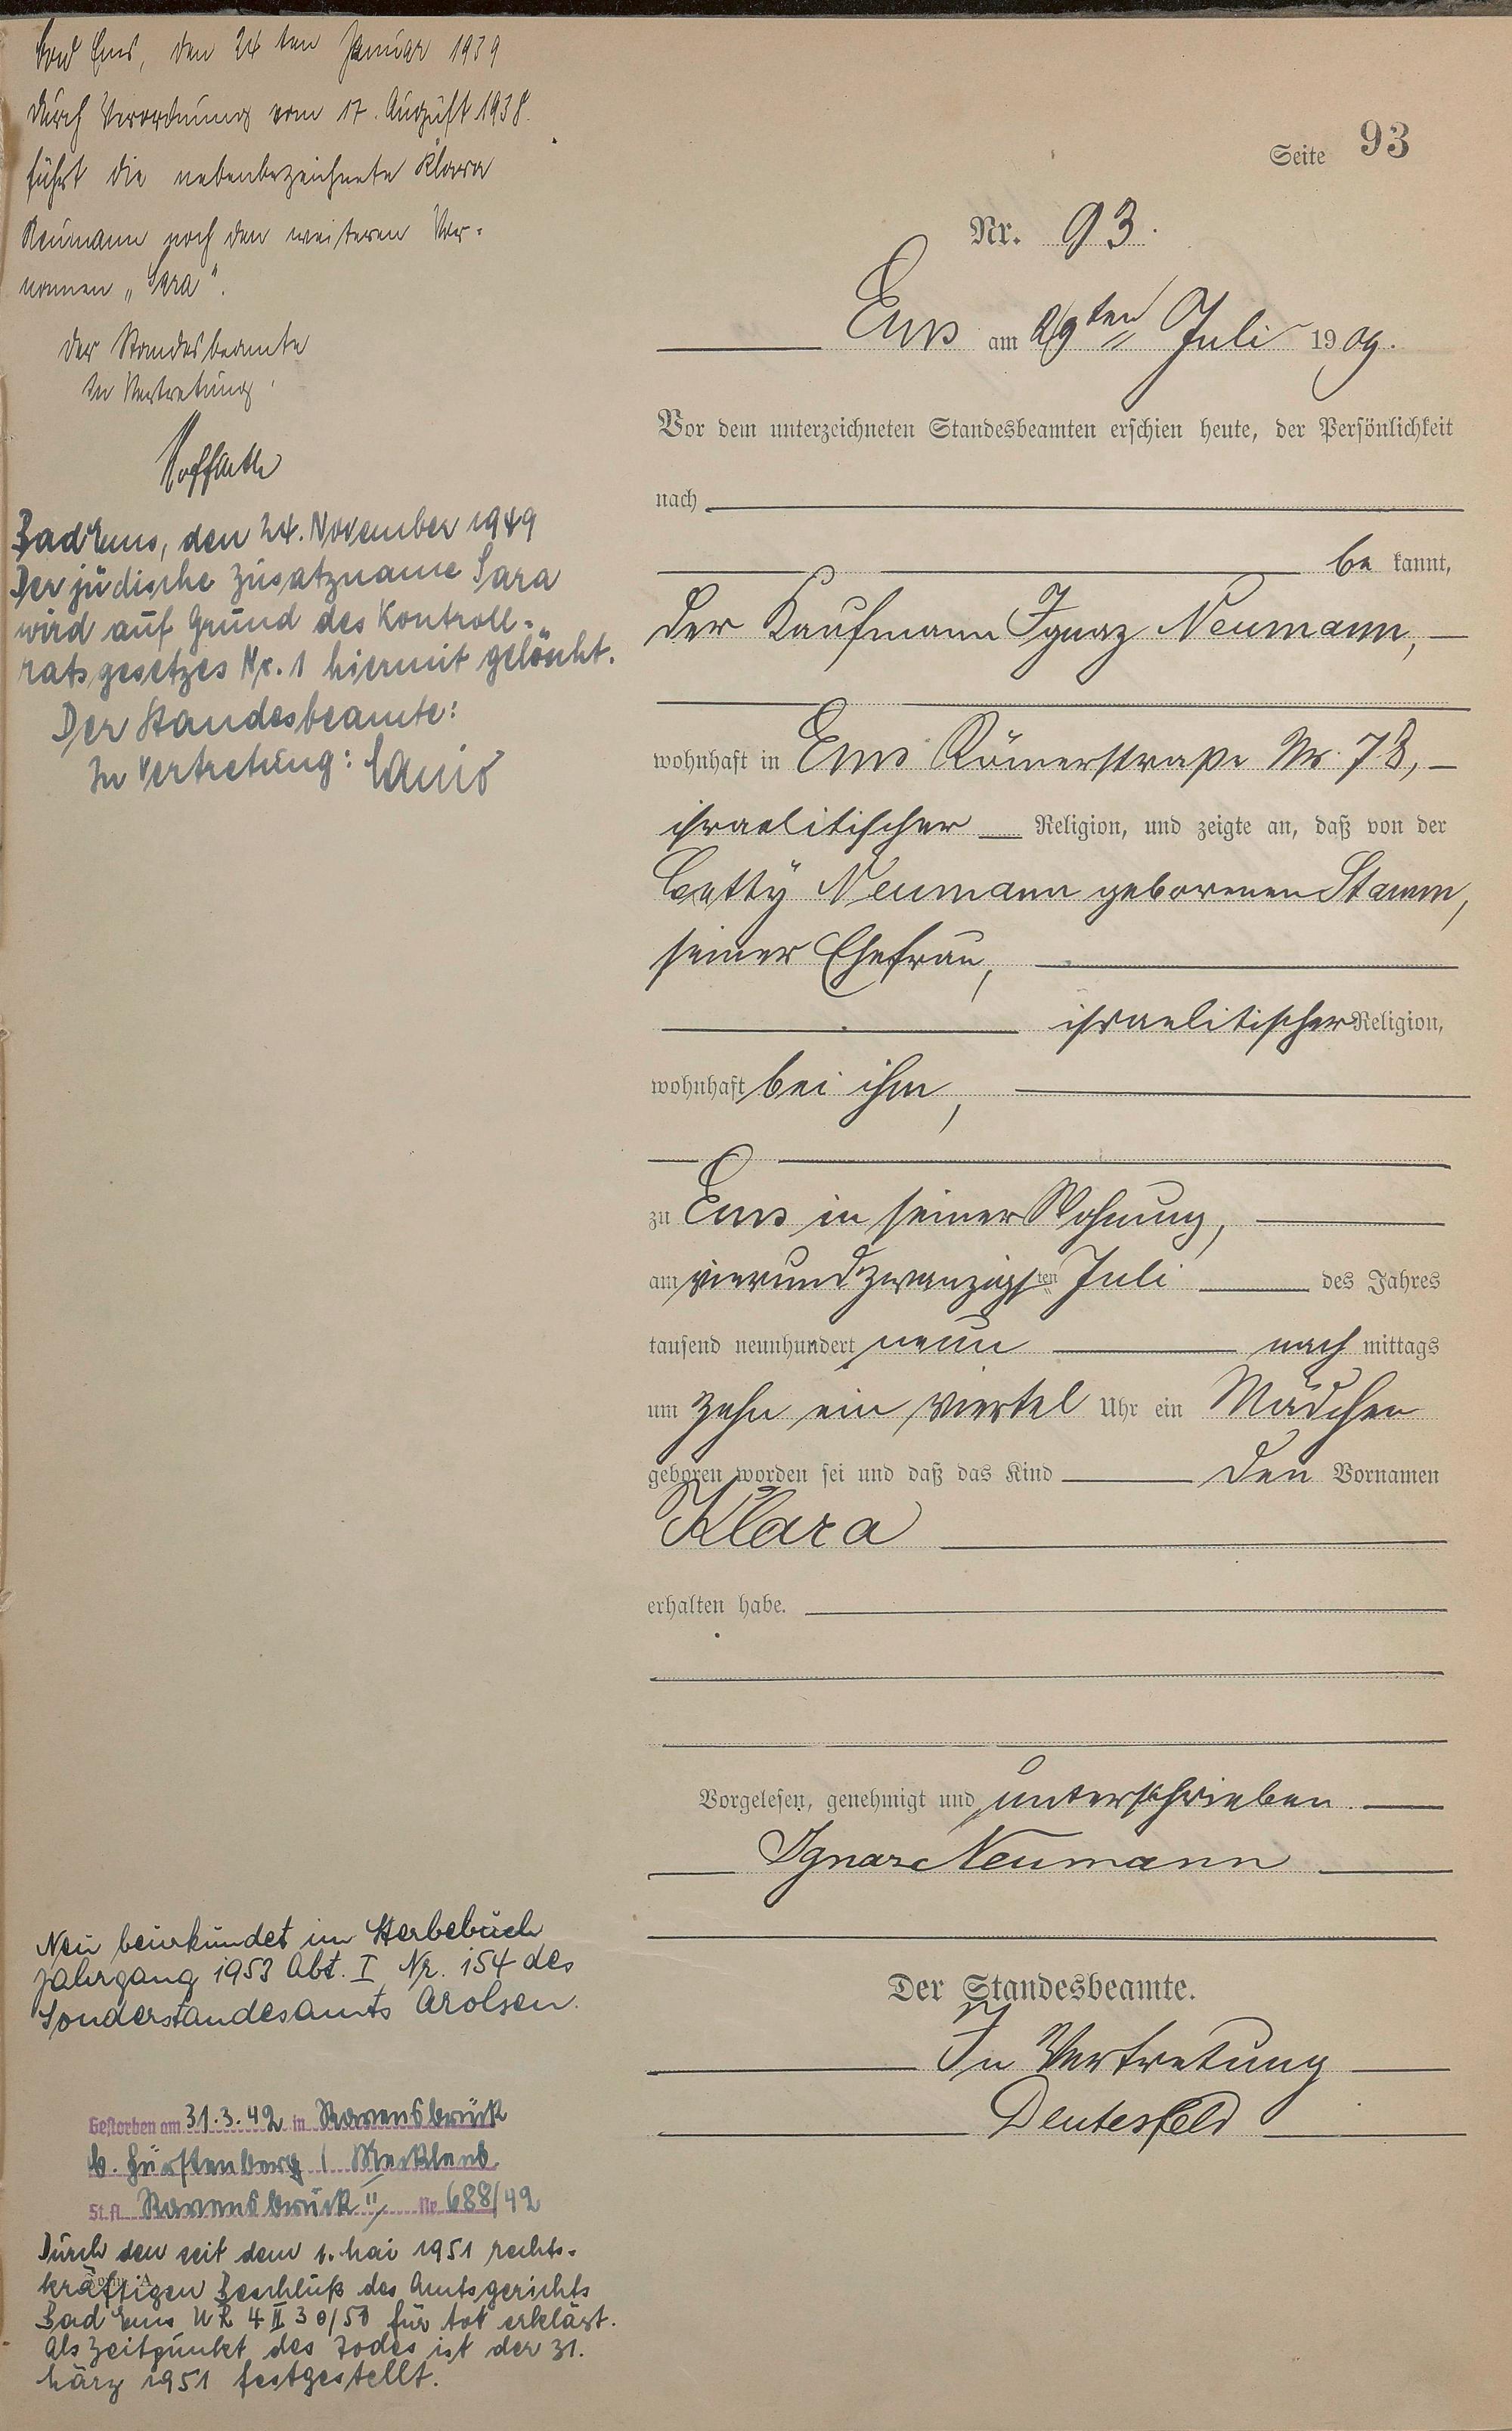 Bad Ems, den 24ten Januar 1939
Durch Verordnung vom 17. August 1938
führt die nebenbezeichnete Klara
Neumann noch den weiteren Vor-
namen „Sara".
Der Standesbeamte
In Vertretung
Bad Ems, den 24. November 1949
Der jüdische Zusatzname Sara
wird auf Grund des Kontroll-
ratsgesetzes Nr. 1 hiermit gelöscht.
Der Standesbeamte:
In Vertretung:
Neu beurkundet im Sterbebuch
Jahrgang 1953 Abt. I Nr. 154 des
Sonderstandesamts Arolsen.
Gestorben am 31.3.42 in Ravensbrück
b. Fürstenberg / Mecklenb.
St.A. Ravensbrück II Nr. 688/42
Durch den seit dem 1. Mai 1951 rechts-
kräftigen Beschluß des Amtsgerichts
Bad Ems UR 4 II 30/50 für tot erklärt.
Als Zeitpunkt des Todes ist der 31.
März 1951 festgestellt.
Seite 93
Nr. 93.
Ems am 29ten Juli 1909.
Vor dem unterzeichneten Standesbeamten erschien heute, der Persönlichkeit
nach
be kannt,
der Kaufmann Ignaz Neumann,
wohnhaft in Ems Römerstraße Nr. 78,
israelitischer Religion, und zeigte an, daß von der
Betty Neumann geborenen Stamm,
seiner Ehefrau,
israelitischer Religion,
wohnhaft bei ihm,
zu Ems in seiner Wohnung,
am vierundzwanzigsten Juli des Jahres
tausend neunhundert neun nach mittags
um zehn ein viertel Uhr ein Mädchen
geboren worden sei und daß das Kind den Vornamen
Klara
erhalten habe.
Vorgelesen, genehmigt und unterschrieben.
Ignaz Neumann
Der Standesbeamte.
In Vertretung
Deutesfeld